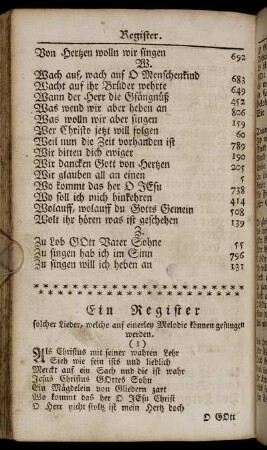 Register.
Von Hertzen wolln wir singen 692
W.
Wach auf, wach auf O Menschenkind 683
Wacht auf ihr Brüder wehrte 649
Wann der Herr die Gfängnüß 452
Was wend wir aber heben an 806
Was wolln wir aber singen 159
Wer Christo jetzt will folgen 60
Weil nun die Zeit vorhanden ist 789
Wir bitten dich ewiger 190
Wir dancken Gott von Hertzen 205
Wir glauben all an einen 5
Wo kommt das her O JEsu 738
Wo soll ich mich hinkehren 414
Wolauff, wolauff du Gotts Gemein 508
Wolt ihr hören was ist geschehen 139
Z.
Zu Lob GOtt Vater Sohne 55
Zu singen hab ich im Sinn 796
Zu singen will ich heben an 131
Ein Register
solcher Lieder, welche auf einerley Melodie können gesungen
werden.
(1)
Als Christus mit seiner wahren Lehr
Sieh wie fein ists und lieblich
Merckt auf ein Sach und die ist wahr
Jesus Christus GOttes Sohn
Ein Mägdelein von Gliedern zart
Wo kommt das her O JEsu Christ
O Herr nicht stoltz ist mein Hertz doch
O GOtt